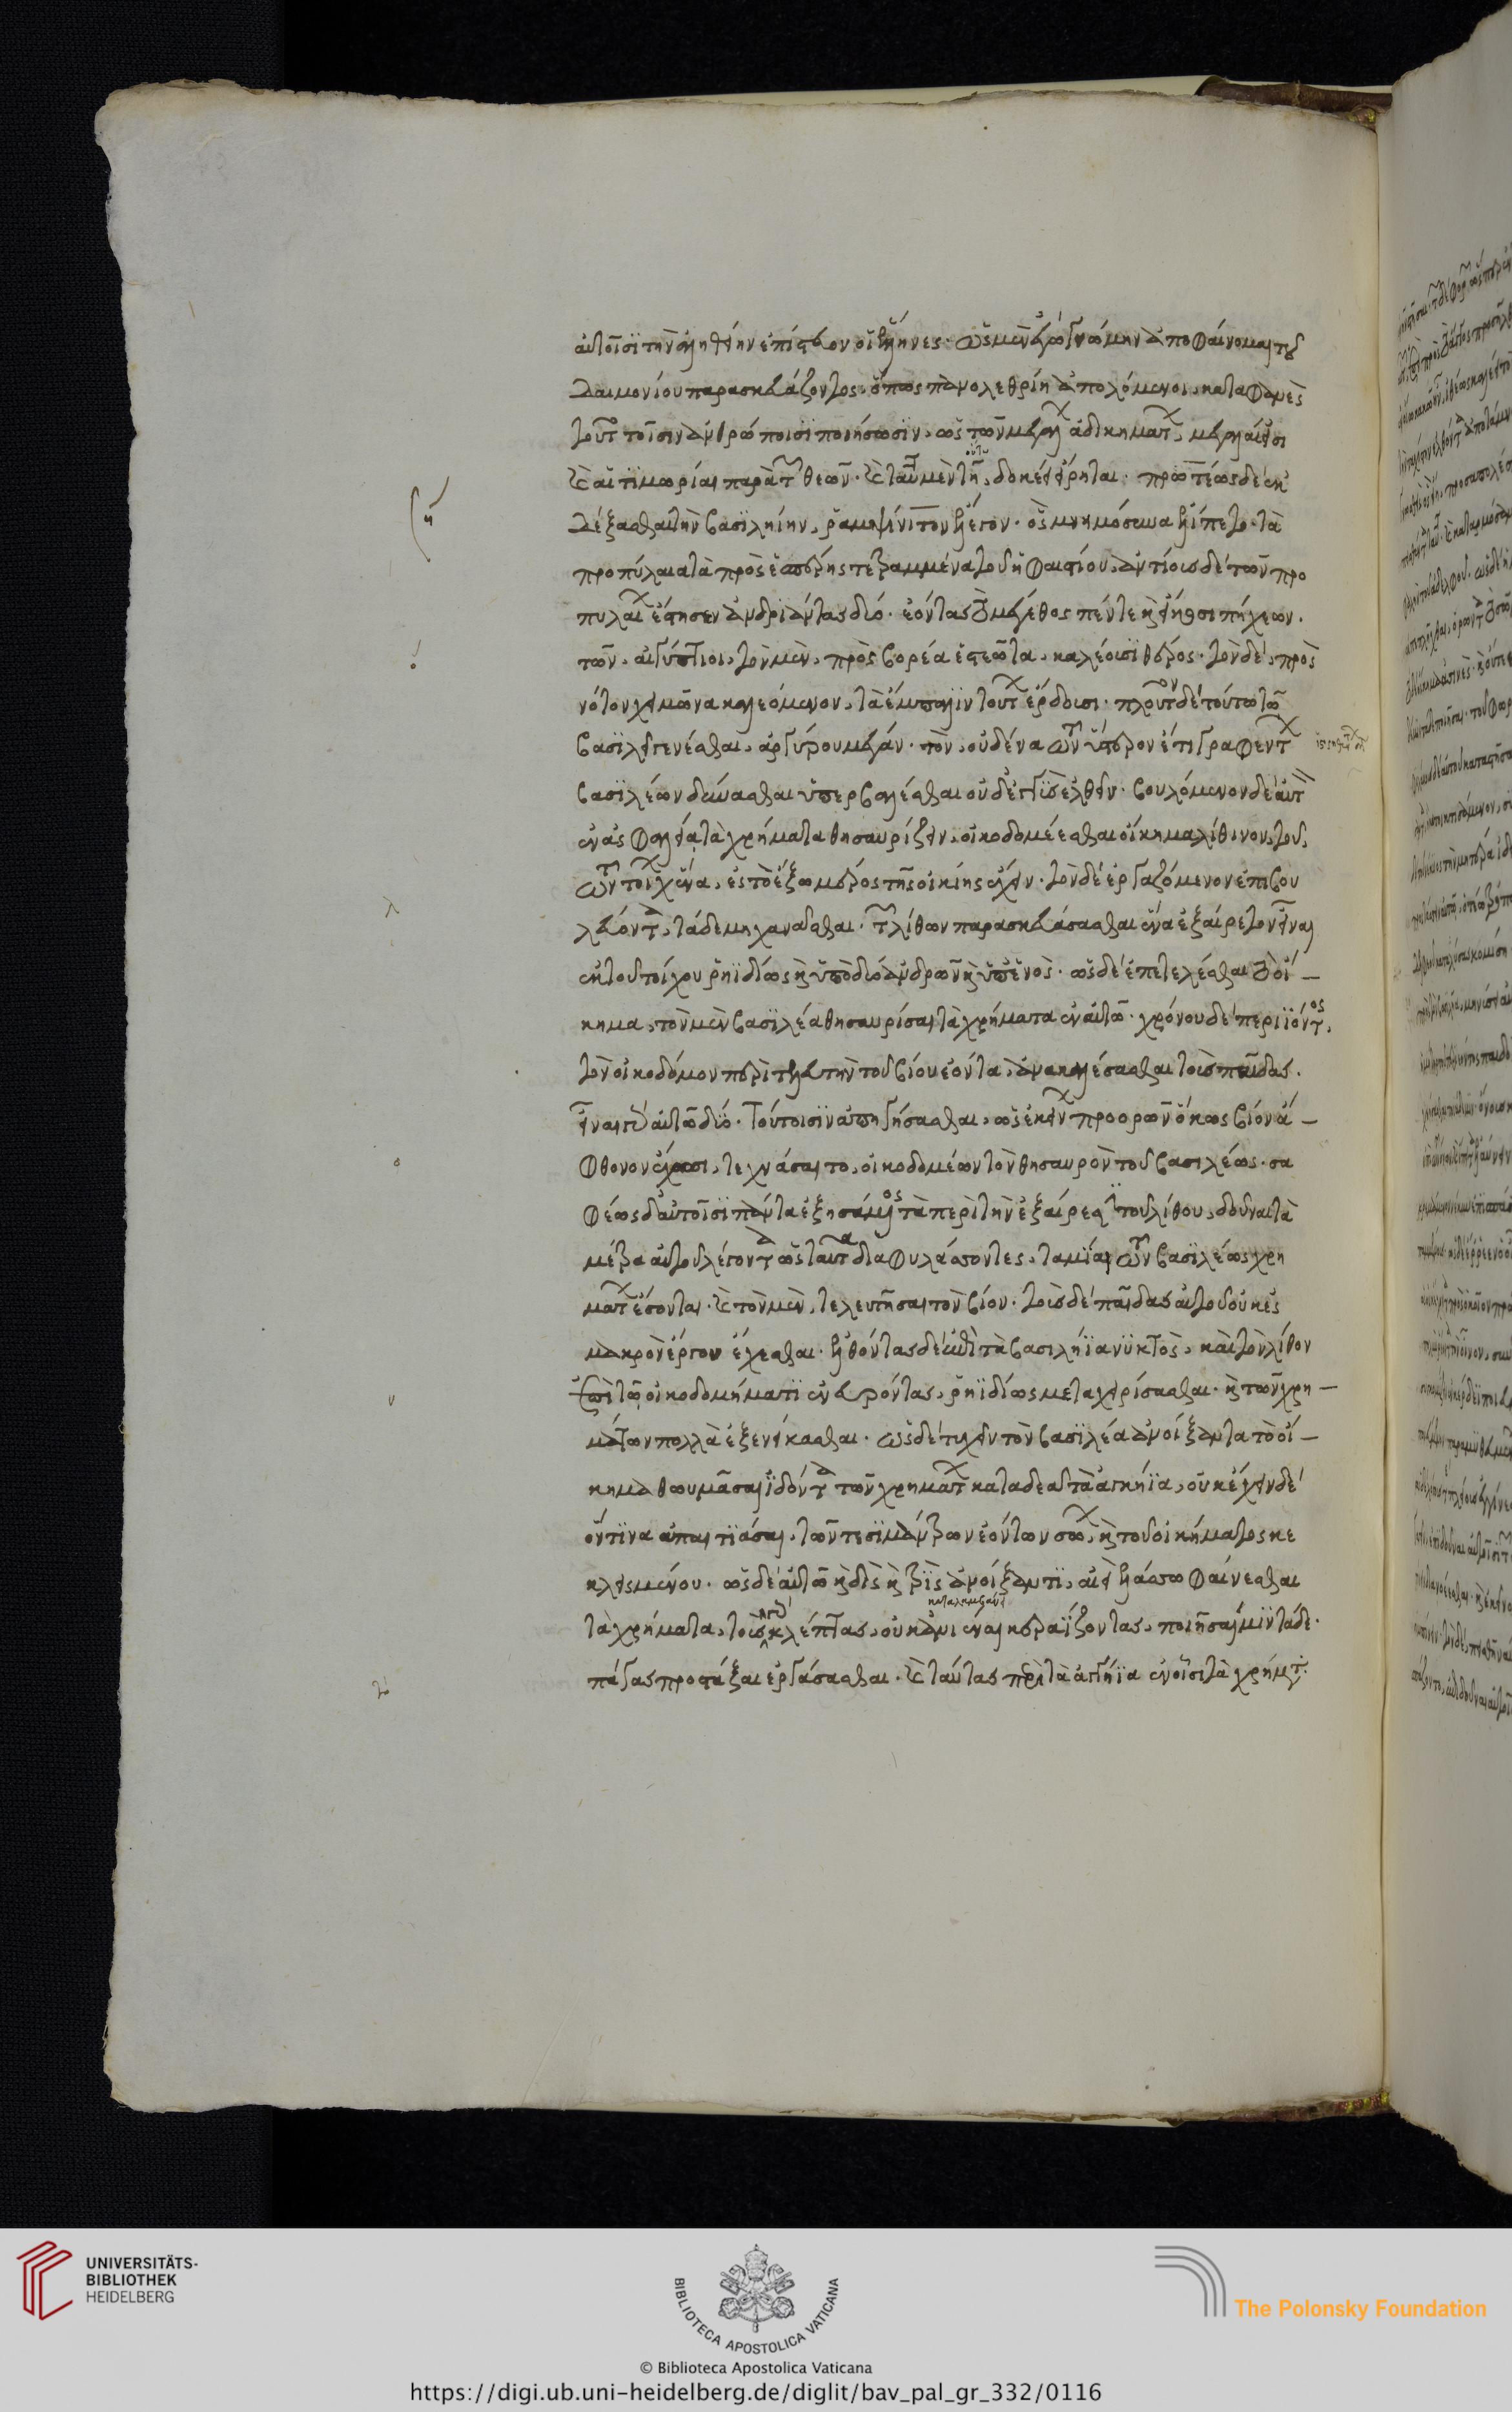 αὐτοῖσι τὴν ἀληθείην ἐπίστευον οἱ ἕλληνες. ὡς μὲν ἐγὼ γνώμην ἀποφαίνομαι τοῦ
δαιμονίου παρασκευάζοντος. ὅπως πανολεθρίη ἀπολόμενοι, καταφανὲς
τοῦτο τοῖσιν ἀνθρώποισι ποιήσωσιν, ὡς τῶν μεγάλων ἀδικημάτων, μεγάλαι εἰσι
καὶ αἱ τιμωρίαι παρὰ τῶν θεῶν. καὶ ταῦτα μὲν τῆ οὕτω, δοκέει εἴρηται. πρωτέως δὲ ἐκ
δέξασθαι τὴν βασιληίην, ῥαμψίνιτον ἔλεγον. ὃς μνημόσυνα ἐλίπετο. τὰ
προπύλαια τὰ πρὸς ἑσπέρης τετραμμένα τοῦ ἡφαιστίου. ἀντίους δὲ τῶν προ
πυλαίων ἔστησεν ἀνδριάντας δύο. ἐόντας τὸ μέγεθος πέντε καὶ εἴκοσι πήχεων.
τῶν, αἰγύπτιοι, τὸν μὲν, πρὸς βορέα ἑστεῶτα, καλέουσι θέρος. τὸν δὲ, πρὸς
νότον χειμῶνα καλεόμενον, τὰ ἔμπαλιν τούτων ἔρδουσι. πλοῦτον δὲ τούτω τῶ
βασιλεῖ γενέσθαι, ἀργύρου μέγαν. τὸν, οὐδένα τῶν ὕστερον ἐπιγραφέντων
βασιλέων δύνασθαι ὑπερβαλέσθαι οὐδ' ἐγγὺς ἐλθεῖν. βουλόμενον δὲ αὐτὸν
ἐν ἀσφαλεία τὰ χρήματα θησαυρίζειν, οἰκοδομέεσθαι οἴκημα λίθινον, τοῦ,
τῶν τοίχων ἕνα, ἐς τὸ ἔξω μέρος τῆς οἰκίης ἔχειν. τὸν δὲ ἐργαζόμενον ἐπιβου
λεύοντα, τάδε μηχανᾶσθαι. τῶν λίθων παρασκευάσασθαι ἕνα ἐξαίρετον εἶναι
ἐκ τοῦ τοίχου ῥηϊδίως καὶ ὑπὸ δύο ἀνδρῶν καὶ ὑπ' ἑνὸς. ὡς δὲ ἐπετελέσθαι τὸ οἴ-
κημα, τὸν μὲν βασιλέα θησαυρίσαι τὰ χρήματα ἐν αὐτῶ. χρόνου δὲ περιϊόντος,
τὸν οἰκοδόμον περὶ τελευτὴν τοῦ βίου ἐόντα, ἀνακαλέσασθαι τοὺς παῖδας.
εἶναι γὰρ αὐτῶ δύο. τούτοισιν ἀπηγήσασθαι, ὡς ἐκείνων προορῶν ὅκως βίον ἄ-
φθονον ἔχωσι, τεχνάσαιτο, οἰκοδομέων τὸν θησαυρὸν τοῦ βασιλέως. σα
φέως δ' αὐτοῖσι πάντα ἐξηγησάμενος τὰ περὶ τὴν ἐξαίρεσιν τοῦ λίθου, δοῦναι τὰ
μέτρα αὐτοῦ λέγοντα ὡς ταῦτα διαφυλάσσοντες, ταμίαι τῶν βασιλέως χρη
μάτων ἔσονται. καὶ τὸν μὲν, τελευτῆσαι τὸν βίον. τοὺς δὲ παῖδας αὐτοῦ οὐκ ἐς
μακρὸν ἔργου ἔχεσθαι. ἐλθόντας δὲ ἐπὶ τὰ βασιλήϊα νυκτὸς, καὶ τὸν λίθον
ἐπὶ τῶ οἰκοδομήματι ἐνευρόντας, ῥηϊδίως μεταχειρίσασθαι. καὶ τῶν χρη-
μάτων πολλὰ ἐξενείκασθαι. ὡς δὲ τυχεῖν τὸν βασιλέα ἀνοίξαντα τὸ οἴ-
κημα θωυμᾶσαι ἰδόντα τῶν χρημάτων καταδεᾶ τὰ ἀγγήϊα, οὐκ ἔχειν δὲ
ὅντινα ἐπαιτιᾶσαι, τῶν τε σημάντρων ἐόντων σώων, καὶ τοῦ οἰκήματος κε
κλεισμένου. ὡς δὲ αὐτῶ καὶ δὶς καὶ τρὶς ἀνοίξαντι, αἰεὶ ἐλάσσω φαίνεσθαι
τὰ χρήματα, τοὺς γὰρ κλέπτας, οὐκ ἀνιέναι κεραΐζοντας, ποιῆσαί μιν τάδε.
πάγας προστάξαι ἐργάσασθαι. καὶ ταύτας περὶ τὰ ἀγγήϊα ἐν οἷσι τὰ χρήματα
UNIVERSITÄTS-
BIBLIOTHEK
HEIDELBERG
BIBLIOTECA APOSTOLICA VATICANA
The Polonsky Foundation
© Biblioteca Apostolica Vaticana
https://digi.ub.uni-heidelberg.de/diglit/bav_pal_gr_332/0116